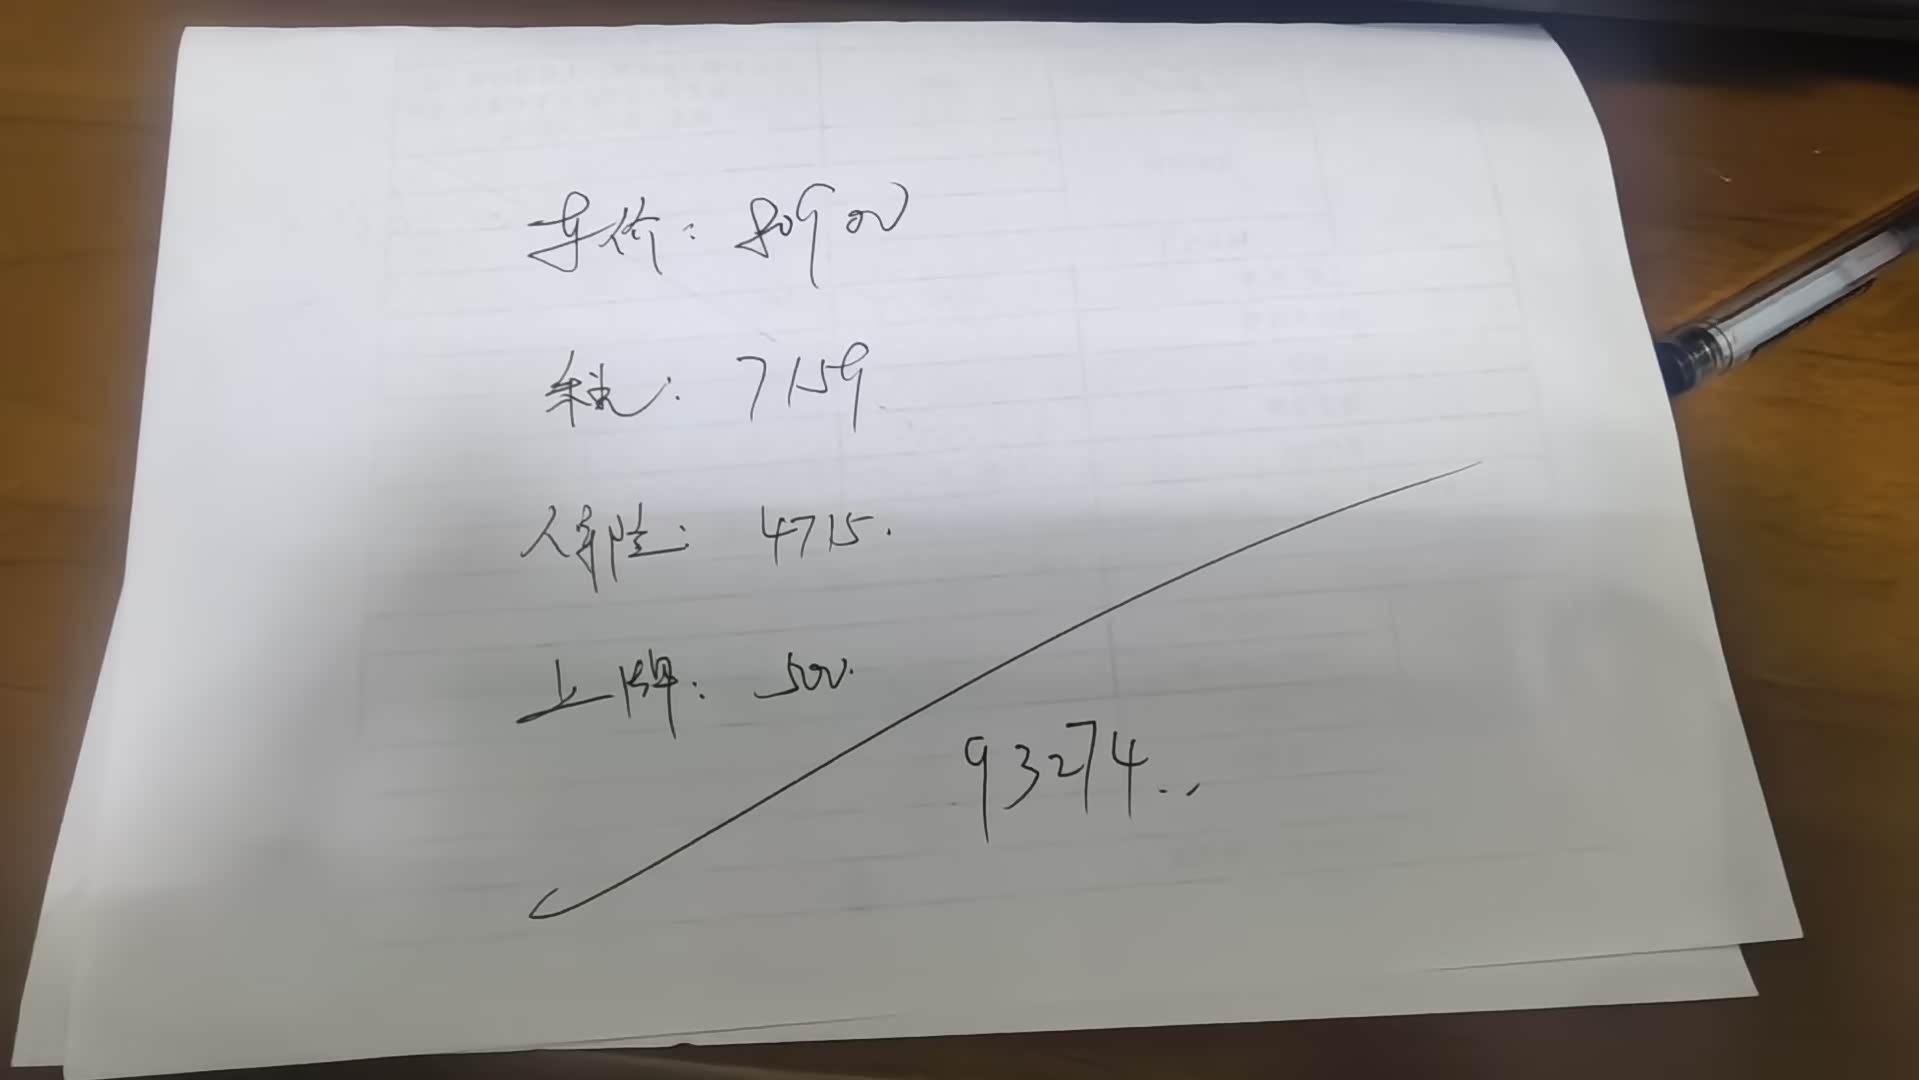 车价: 80900
税: 7159
人车险: 4715.
上牌: 500.
93274..